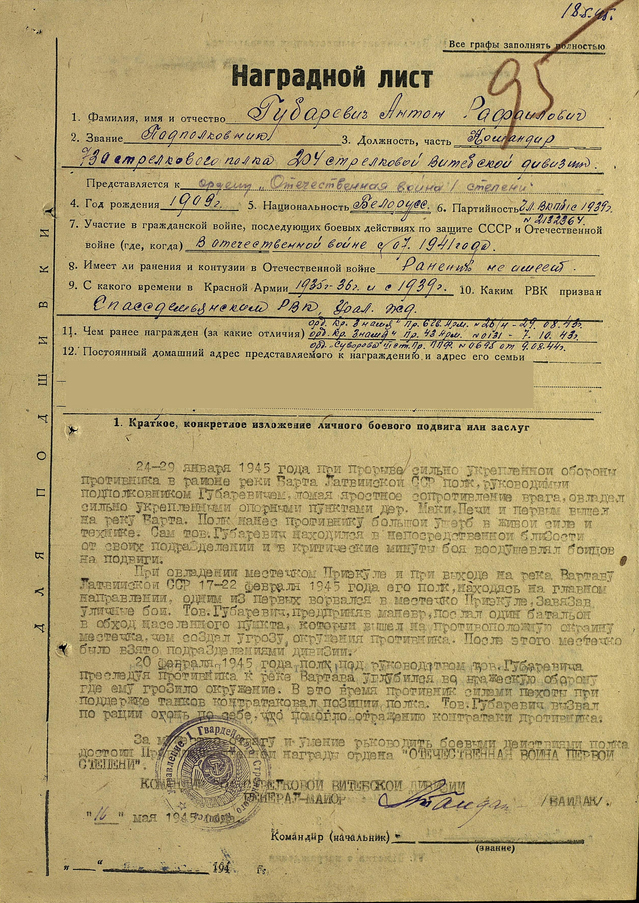 18.5.45.
Все графы заполнять полностью
95
Наградной лист
1. Фамилия, имя и отчество Губаревич Антон Рафаилович
2. Звание Подполковник 3. Должность, часть Командир
730 стрелкового полка 204 стрелковой Витебской дивизии.
Представляется к ордену „Отечественная война I степени"
4. Год рождения 1909 г. 5. Национальность Белорусс. 6. Партийность Чл. ВКП(б) с 1939г.
№ 2132364.
7. Участие в гражданской войне, последующих боевых действиях по защите СССР и Отечественной
войне (где, когда) В отечественной войне с 07. 1941 года.
8. Имеет ли ранения и контузии в Отечественной войне Ранений не имеет.
9. С какого времени в Красной Армии 1935г-36г. и с 1939г. 10. Каким РВК призван
Спассдемьянским РВК, Урал. жд.
орд. Кр. Знамя Пр.
11. Чем ранее награжден (за какие отличия) орд. Кр. Знамя Пр. 43 Арм. №0131 - 7. 10. 43г.
12. Постоянный домашний адрес представляемого к награждению и адрес его семьи орд. Суворова Пр. №0695 от 9.08.44г.
ДЛЯ ПОДШИВКИ
1. Краткое, конкретное изложение личного боевого подвига или заслуг
24-29 января 1945 года при прорыве сильно укрепленной обороны
противника в районе реки Барта Латвийской ССР полк, руководимый
подполковником Губаревичем, ломая яростное сопротивление врага, овладел
сильно укрепленными опорными пунктами дер. Маки, Печи и первым вышел
на реку Барта. Полк нанес противнику большой ущерб в живой силе и
технике. Сам тов. Губаревич находился в непосредственной близости
от своих подразделений и в критические минуты боя воодушевлял бойцов
на подвиги.
При овладении местечком Приэкуле и при выходе на река Вартаву
Латвийской ССР 17-22 февраля 1945 года его полк, находясь на главном
направлении, одним из первых ворвался в местечко Приэкуле, завязав
уличные бои. Тов. Губаревич, предприняв маневр, послал один батальон
в обход населенного пункта, который вышел на противоположную окраину
местечка, чем создал угрозу, окружения противника. После этого местечко
было взято подразделениями дивизии.
20 февраля 1945 года полк под руководством тов. Губаревича
преследуя противника к реке Вартава углубился во вражескую оборону
где ему грозило окружение. В это время противник силами пехоты при
поддержке танков контратаковал позиции полка. Тов. Губаревич вызвал
по рации огонь по себе, что помогло отражению контратаки противника.
За и умение руководить боевыми действиями полка
достоин награды ордена "ОТЕЧЕСТВЕННАЯ ВОЙНА ПЕРВОЙ
СТЕПЕНИ".
СТРЕЛКОВОЙ ВИТЕБСКОЙ ДИВИЗИИ
ГЕНЕРАЛ-МАЙОР /БАЙДАК/.
"16" мая 1945 года
Командир (начальник)
(звание)
„ " 194 г.